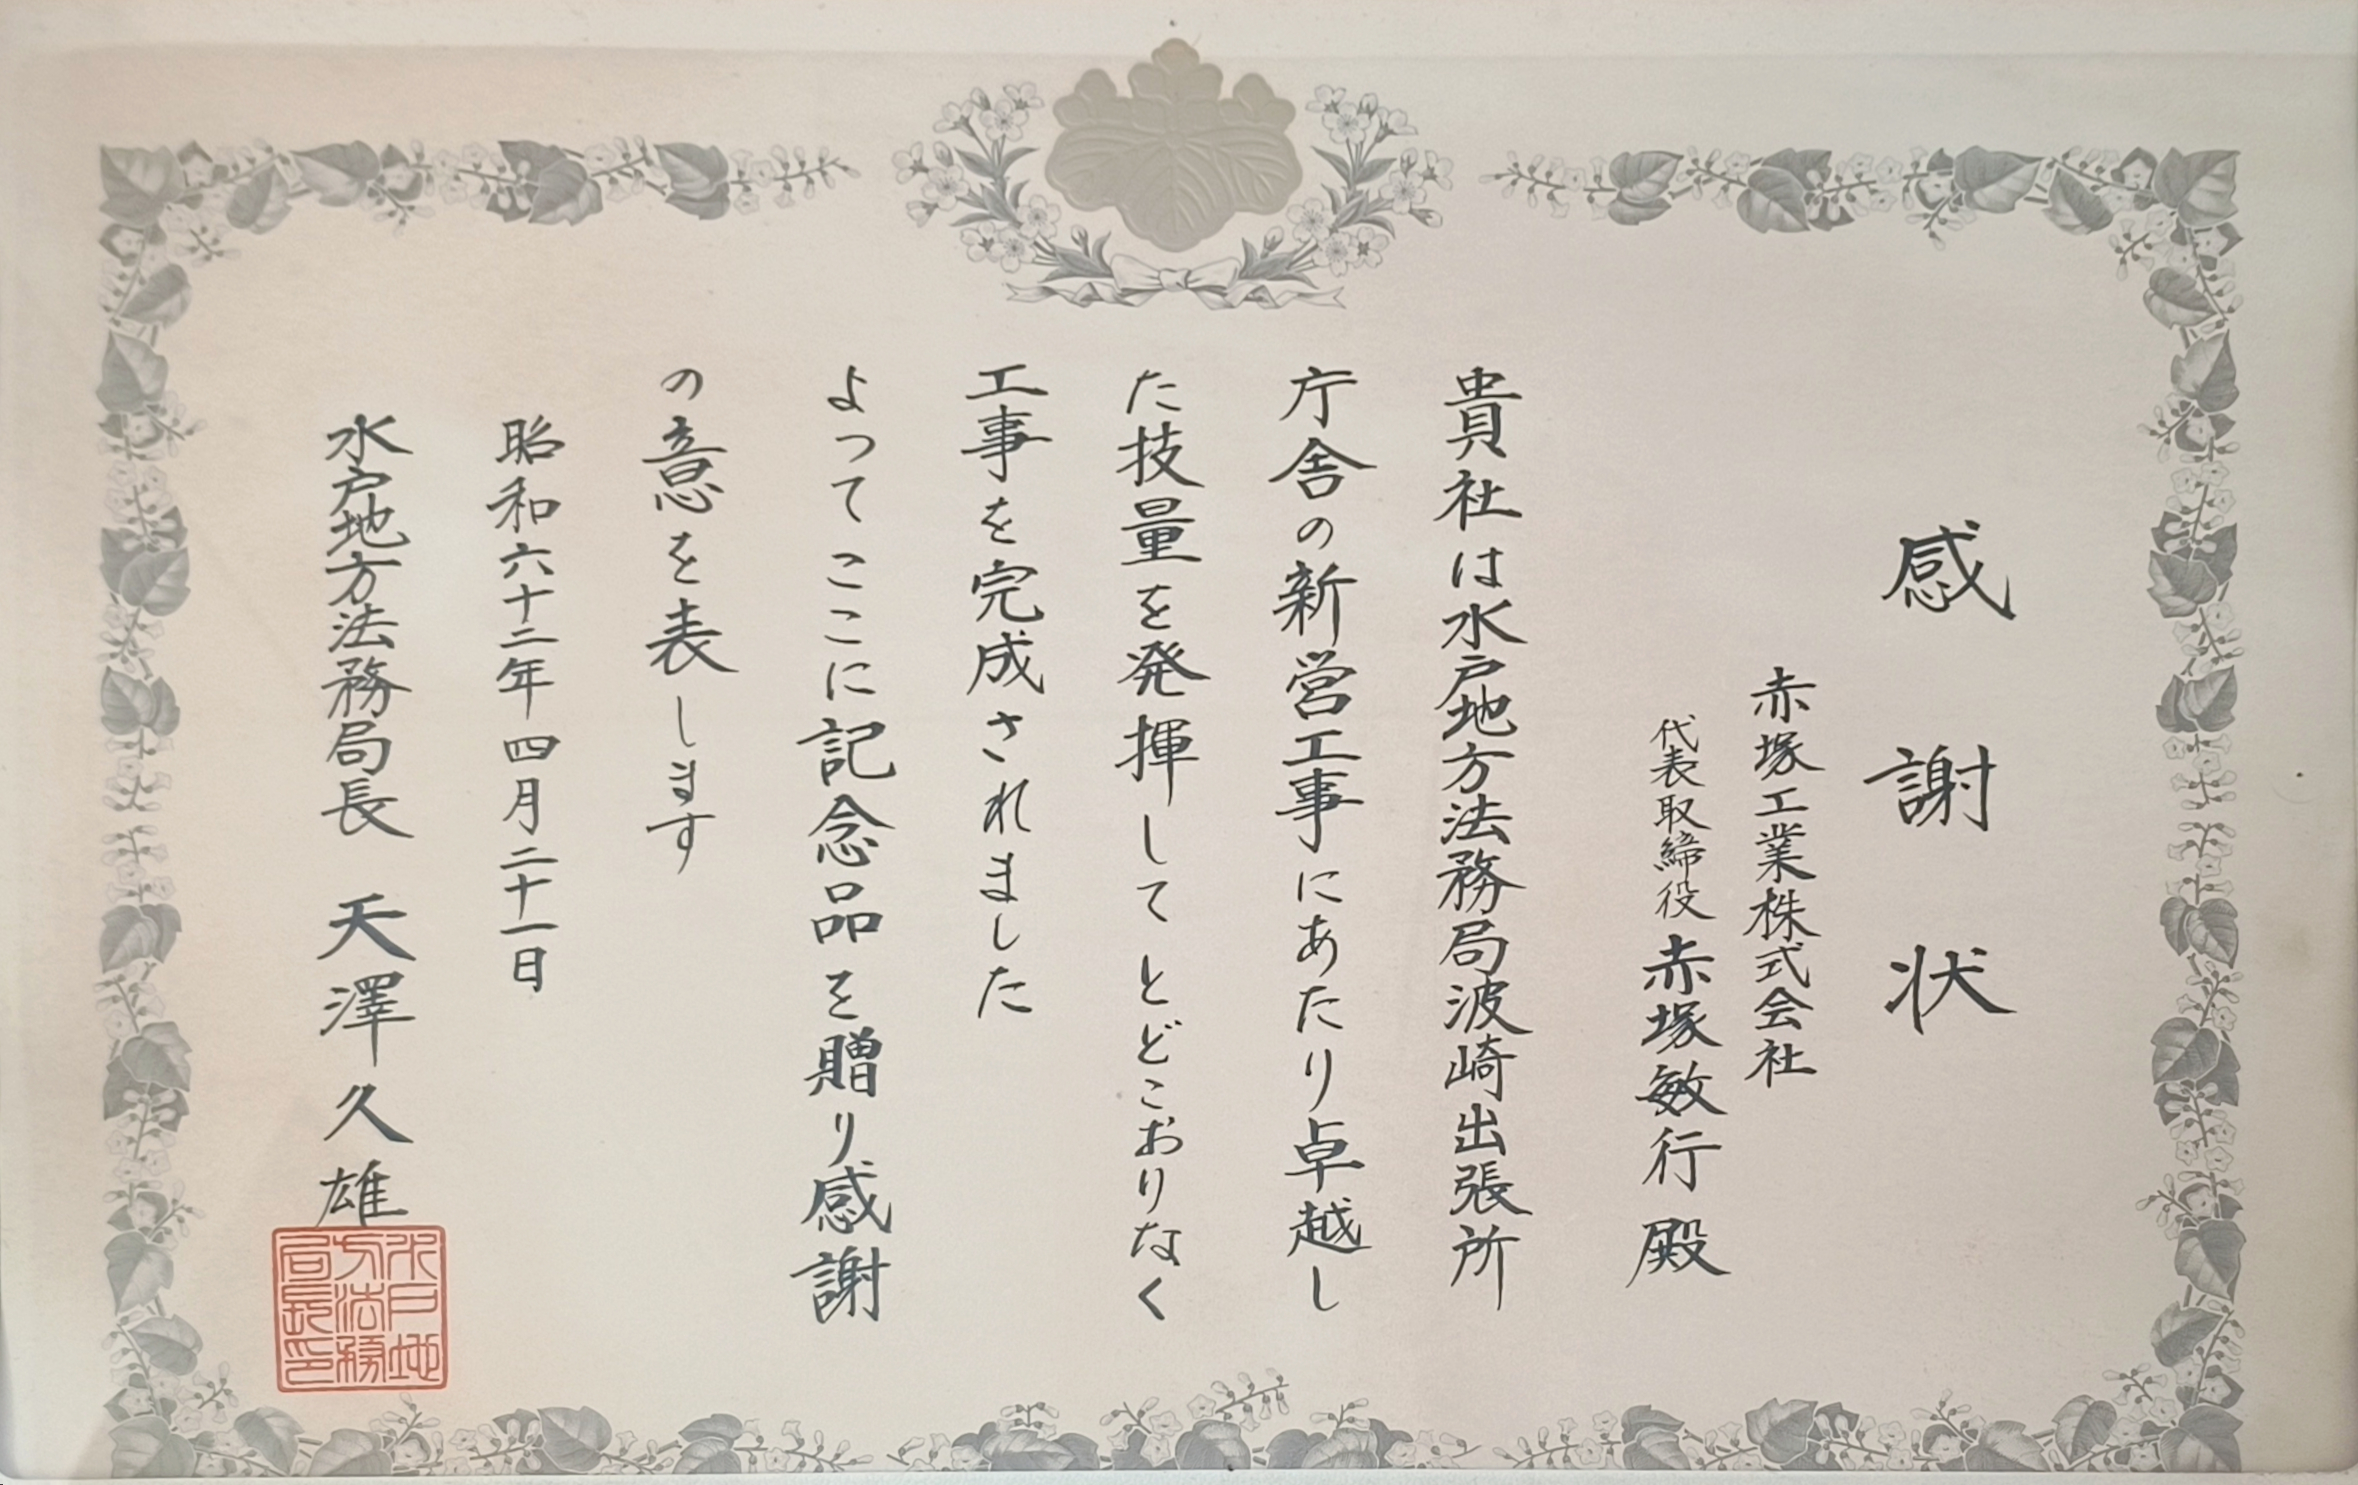 感謝状
赤塚工業株式会社
代表取締役 赤塚敏行 殿
貴社は水戸地方法務局波崎出張所
庁舎の新営工事にあたり卓越し
た技量を発揮してとどこおりなく
工事を完成されました
よってここに記念品を贈り感謝
の意を表します
昭和六十二年四月二十一日
水戸地方法務局長 天澤久雄
水戸地
方法務
局長印